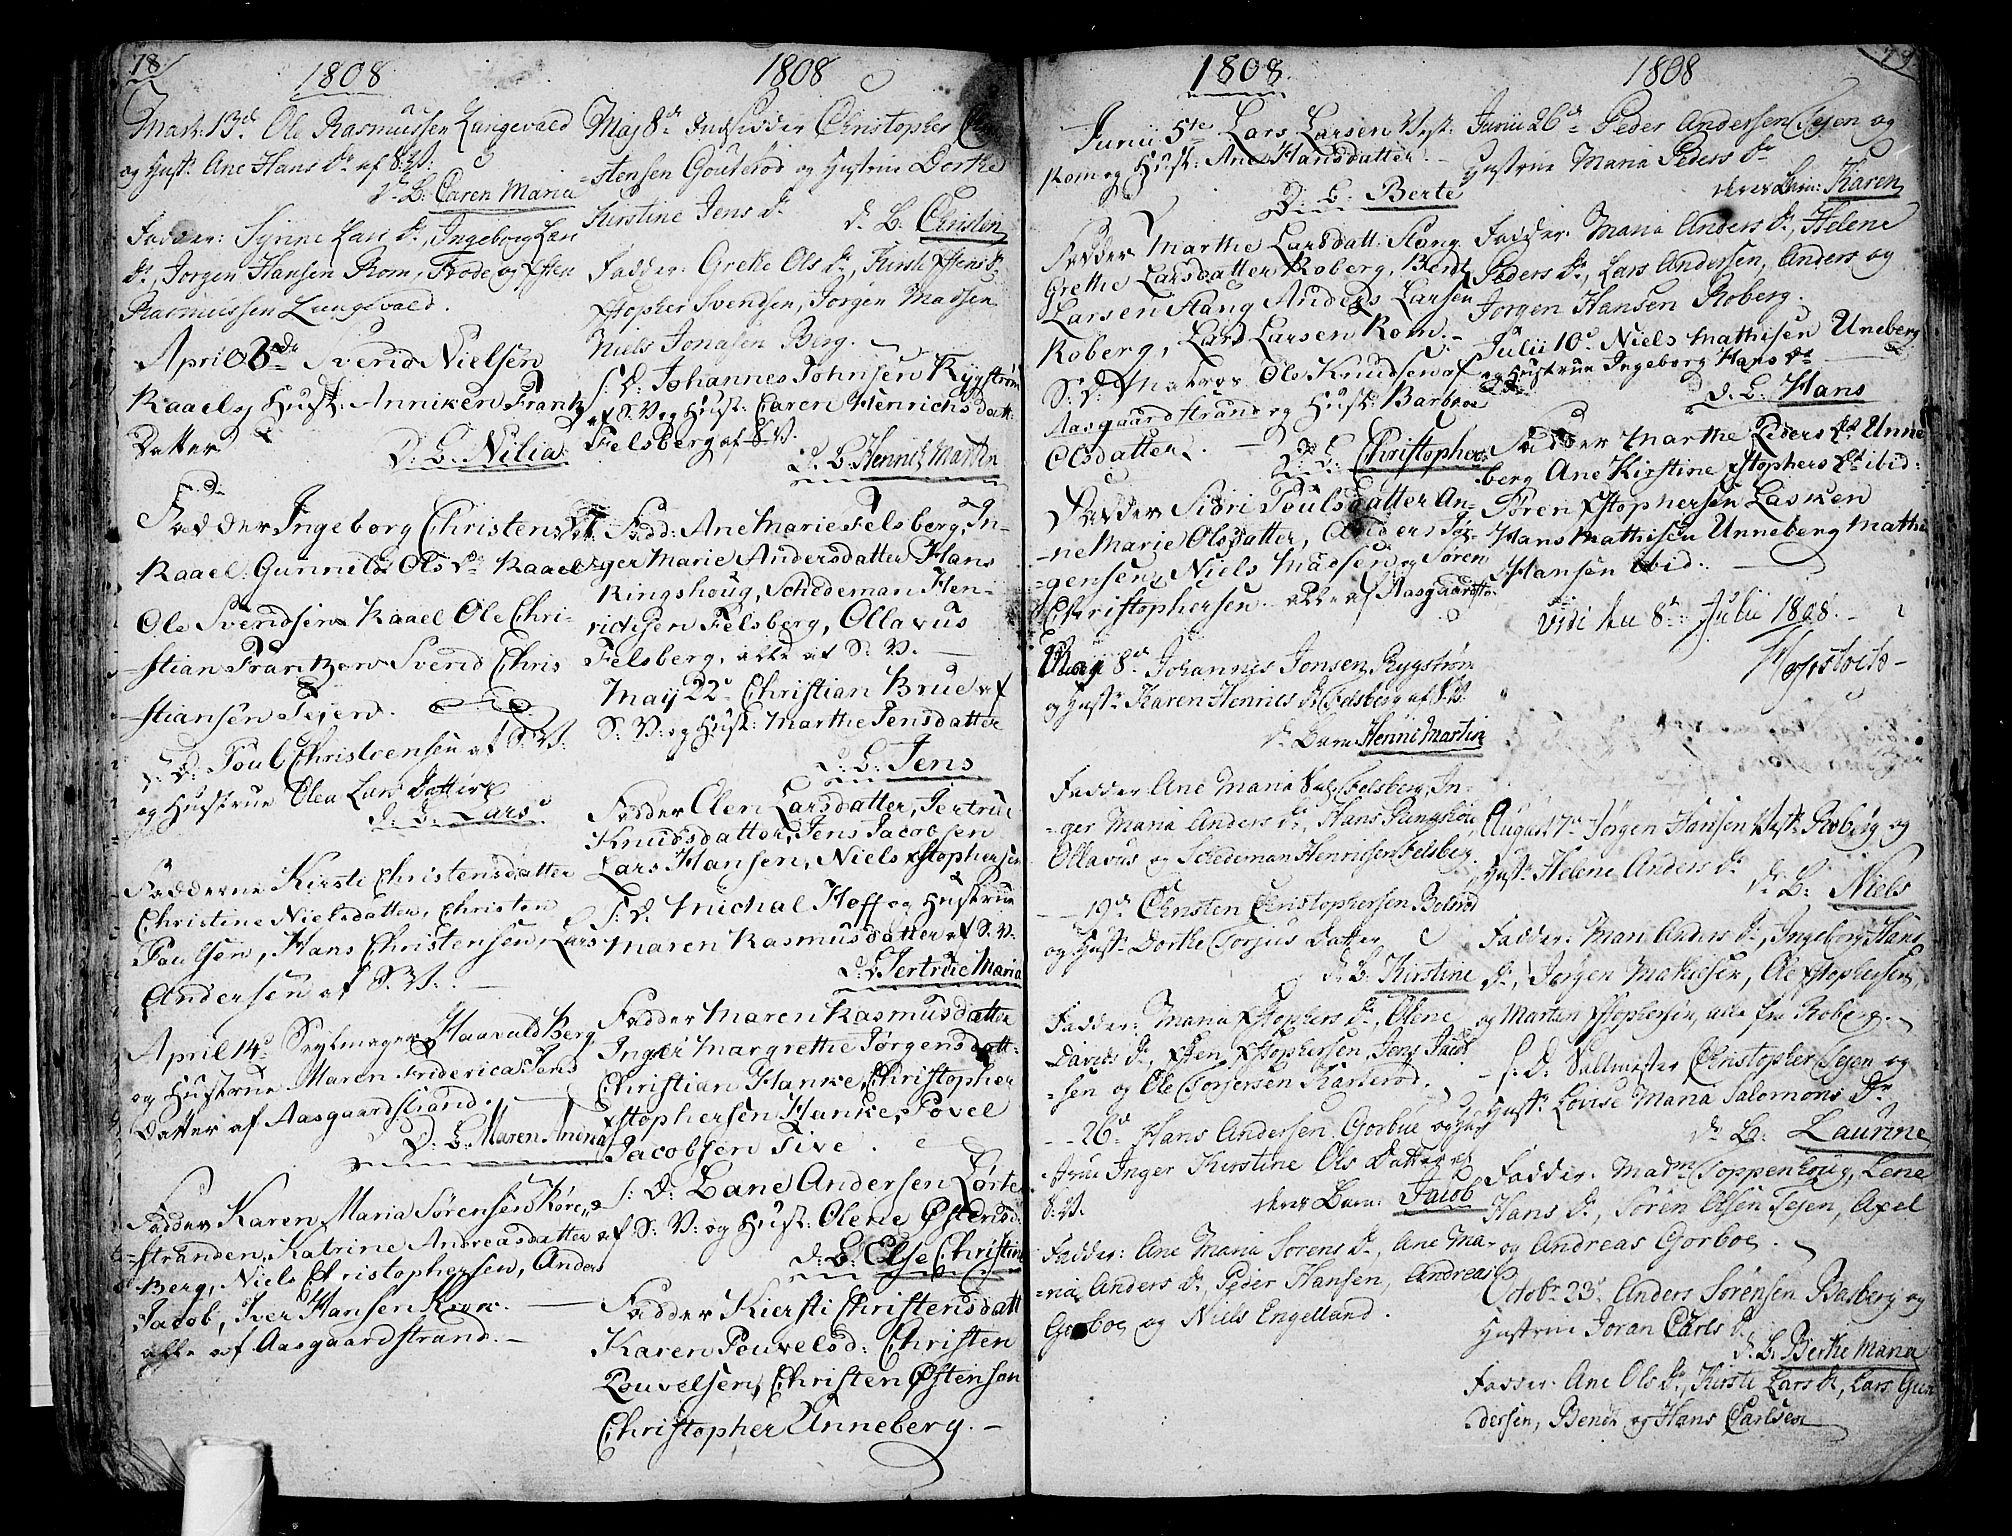 78
1808
Mart: 13de Ole Rasmussen Lungevald
og Hust: Ane Hans Dr af S:V:
D: B: Caren Maria
Fadder: Syrine Lars Dr, Ingeborg Lars
Dr, Jørgen Hansen Rom, Frode og
Rasmussen Lungevald.
April Svend Nielsen
Raael og Hust: Anniken Frantz
Datter
D. B. Nilia
Fadder Ingeborg Christens Dr
Raael. Gunnild Ols Dr Raael
Ole Svendsen Raael Ole Chri-
-stian Frantzen Svend Chris
-stiansen Tejen.
S: D: Poul Christensen af S:V:
og Hustrue Olea Lars Datter
D. B. Lars
Fadderne Kirsti Christensdatter
Christine Nielsdatter, Christen
Poulsen, Hans Christensen, Lars
Andersen af S:V:
April 14de Seylmager Haavald Berg
og Hustrue Maren Fridericia Jens
Datter af Aasgaardstrand.
D: B: Maren Andrea
Fadder Karen Maria Sørensen Røre
stranden, Katrine Andreasdatter
Berg, Niels Christophersen, Anders
Jacob, Iver Hansen Krow.
alle af Aasgaardstrand.
1808
Maj 8de Indsidder Christopher Chri
-stensen Gouterød og Hustrue Dorthe
Kirstine Jens Dr
d. B. Christen
Fadder: Grethe Ols Dr, Kirsti
Xstopher Svendsen, Jørgen Madsen
Niels Jonasen Berg.
S: D: Johannes Johnsen Rygstrøm
af S:V: og Hust: Caren Henrichsdatt:
Felsberg af S:V.
D. B. Henrich Martin
Fadd: Ane Marie Felsberg, In-
ger Marie Andersdatter Hans
Ringshoug, Schideman Hen-
richsen Felsberg, Ollavus
Felsberg, alle af S:V:
May 22de Christian Brue af
S:V: og Hust: Marthe Jensdatter
D: B: Jens
Fadder Elen Larsdatter, Jertrue
Knudsdatter, Jens Jacobsen
Lars Hansen, Niels Xstophersen
S: D: Michal Hoff og Hustrue
Maren Rasmusdatter af S:V:
D: Jertrue Maria
Fadder Maren Rasmusdatter
Inger Margrethe Jørgensdatt:
Christian Hanke, Christopher
Xstophersen Hanke, Povel
Jacobsen Tive.
S: D: Lane Andersen Lørte
af S:V: og Hust: Olene Østensd:
D: B: Else Christine
Fadder Kiersti Christensdatt
Karen Pouvelsd: Christen
Pouvelsen, Christen Østensen
Christopher Unneberg.
1808
Junii 5te Lars Larsen Vest:
Rom og Hust: Ane Hansdatter.
D: B: Berte
Fadder Marthe Larsdatt: Houg
Grethe Larsdatter Roberg, Berdt
Larsen Houg Anders Larsen
Roberg, Lars Larsen Rom.
S: D: Matros Ole Knudsen af
Aasgaardstrand og Hust: Barbroe
Olsdatter.
D: B: Christopher
Fadder Sidri Poulsdatter An-
-ne Marie Olsdatter, Anders Jør-
-gensen, Niels Madsen og Søren
Christophersen alle af Aasgaardst:
May 8de Johannes Jonsen Rygstrøm
og Hust: Karen Henrics Dr Felsberg af S:V:
ds Barn Henric Martin
Fadder Ane Maria Felsberg, In-
-ger Maria Anders Dr, Hans Ringshou
Ollavus og Schideman Henricsen Felsberg.
-- 19de Christen Christophersen
og Hust: Dorthe Torjus Datter
ds B: Kirstine
Fadder: Maria Xstophers Dr, Olene
Davids Dr, Xsten Xstophersen, Jens Jacob
-sen og Ole Torjersen
-- 26de Hans Andersen Gorboe og Hu
strue Inger Kirstine Ols Datter af
S:V.
deres Barn: Jacob
Fadder: Ane Maria Sørens Dr, Ane Ma-
-ria Anders Dr, Peder Hansen, Andreas
Gorboe og Niels Engelland.
79
1808
Junii 26de Peder Andersen Tejen og
Hustrue Maria Peders Dr
deres Barn: Karen
Fadder: Maria Anders Dr, Helene
Peders Dr, Lars Andersen, Anders og
Jørgen Hansen Roberg.
Julii 10de Niels Mathisen Uneberg
og Hustrue Ingeborg Hans Dr
D. B. Hans
Fadder Marthe Peders Dr Unne
berg Ane Kirstine Xstophers Dr ibid:
Søren Xstophersen Lasken
Hans Mathisen Unneberg Mathis
Hansen ibid.
Vidi den 8de Julii 1808.
August 7de Jørgen Hansen Vest: Roberg og
Hust: Helene Anders Dr
ds B: Niels
Fadder: Mari Anders Dr, Ingeborg Hans
Dr, Jørgen Mathiesen, Ole Xstophersen
og Martin Xstophersen, alle fra Roberg.
- S: D: Saltmester Christopher Tejen og
Hust: Lovise Maria Salomons Dr
ds B: Laurine
Fadder: Madm Toppenhoug, Lene
Hans Dr, Søren Olsen Tejen, Axel
og Andreas Gorboe.
Octobr 23de Anders Sørensen Basberg og
Hustrue Joran Carls Dr
d. B: Berthe Maria
Fadder: Ane Ols Dr, Kirsti Lars Dr, Lars Gun
dersen, Bendt og Hans Carlsen